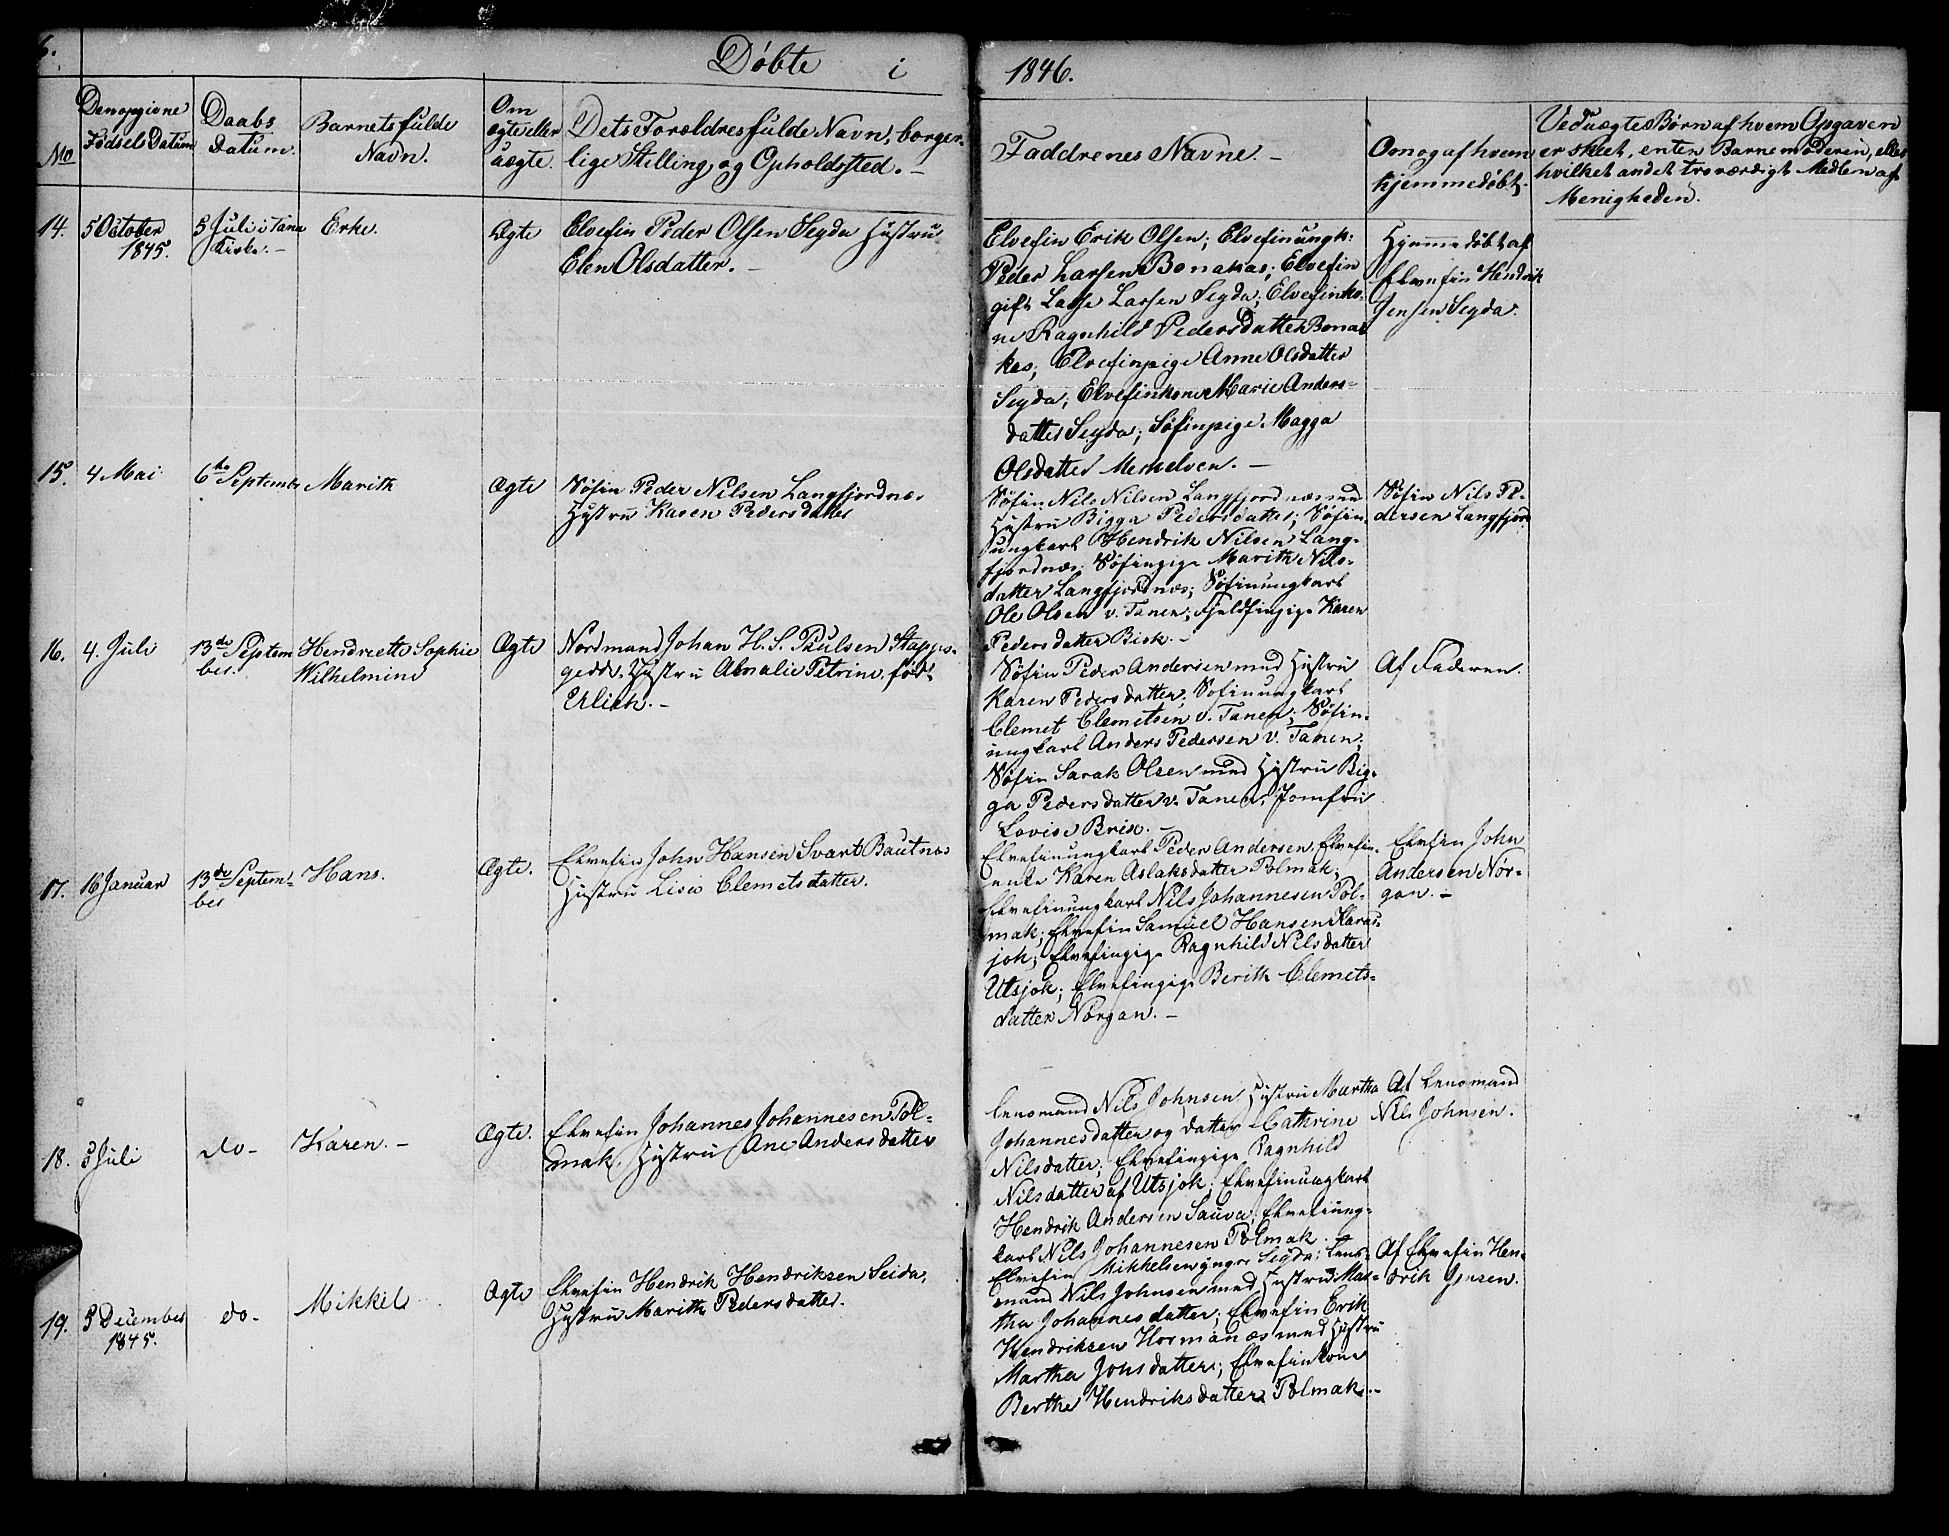 6.
Døbte i 1846.
No
Den opgivne
Fødsels Datum
Daabs
Datum.
Barnets fulde
Navn.
Om
ægte eller
uægte.
Dets Forældres fulde Navn, borger-
lige Stilling, og Opholdssted. -
Faddrenes Navne. -
Om og af hvem
hjemmedøbt.
Ved uægte Børn af hvem Opgaven
er skeet, enten Barnemoderen, eller
hvilket andet troværdigt Medlem af
Menigheden.
14.
5 October
1845.
5 Juli i Tana
Kirke. -
Erke.
Ægte
Elvefin Peder Olsen Seyda Hustru
Elen Olsdatter. -
Elvefin Erik Olsen; Elvefinungk:
Peder Larsen Bonakas; Elvefin
gift Lasse Larsen Seyda; Elvefinko-
ne Ragnhild Pedersdatter Bona-
kas; Elvefinpige Anne Olsdatter
Seyda; Elvefinkone Marie Anders-
datter Seyda; Søfinpige Magga
Olsdatter Meskelven. -
Hjemmedøbt af
Elvefin Hendrik
Jensen Seyda.
15.
4 Mai
6te Septembr
Marith
Ægte
Søfin Peder Nilsen Langfjordnæs
Hustru Karen Pedersdatter
Søfin Nils Nilsen Langfjordnæs med
Hustru Bigga Pedersdatter; Søfin-
ungkarl Hendrik Nilsen Lang-
fjordnæs; Søfinpige Marith Nils-
datter Langfjordnæs; Søfinungkarl
Ole Olsen v. Tanen; Fjeldfinpige Karen
Pedersdatter Bisk. -
Søfin Nils Pe-
dersen Langfjord
16.
4. Juli
13de Septem
ber.
Hendriette Sophie
Wilhelmine
Ægte
Nordmand Johan H. S. Paulsen Stappo-
gedde. Hustru Amalie Petrine, född
Erlich. -
Søfin Peder Andersen med Hustru
Karen Pedersdatter; Søfinungkarl
Clemet Clemetsen v. Tanen; Søfin-
ungkarl Anders Pedersen v. Tanen;
Søfin Sarak Olsen med Hustru Big-
ga Pedersdatter v. Tanen; Jomfru
Lovise Brix. -
Af Faderen.
17.
16 Januar
13de Septem-
ber
Hans.
Ægte.
Elvefin John Hansen Svart Bautnæs
Hustru Lisie Clemetsdatter.
Elvefinungkarl Peder Andersen, Elvefin-
enke Karen Aslaksdatter Polmak;
Elvefinungkarl Nils Johannesen Pol-
mak; Elvefin Samuel Hansen Karas-
jok; Elvefinpige Ragnhild Nilsdatter
Utsjok; Elvefinpige Berith Clemets-
datter Norgan. -
Elvefin John
Andersen Nor-
gan. -
18.
5 Juli
do -
Karen. -
Ægte.
Elvefin Johannes Johannesen Pol-
mak. Hustru Ane Andersdatter
Lensmand Nils Johnsen, Hustru Martha
Johannesdatter og datter Cathrine
Nilsdatter; Elvefinpige Ragnhild
Nilsdatter af Utsjok; Elvefinungkarl
Hendrik Andersen Sauva; Elvefinung-
karl Nils Johannesen Polmak.
Af Lensmand
Nils Johnsen.
19.
3 December
1845.
do -
Mikkel
Ægte
Elvefin Hendrik Hendriksen Seida,
Hustru Marith Pedersdatter.
Elvefin Mikkelsen yngre Seyda; Lens-
mand Nils Johnsen med Hustru Mar-
tha Johannesdatter; Elvefin Erik
Hendriksen Hormanæs med Hustru
Martha Jonsdatter; Elvefinkone
Berthe Hendriksdatter Polmak. -
Af Elvefin Hen-
drik Jensen.